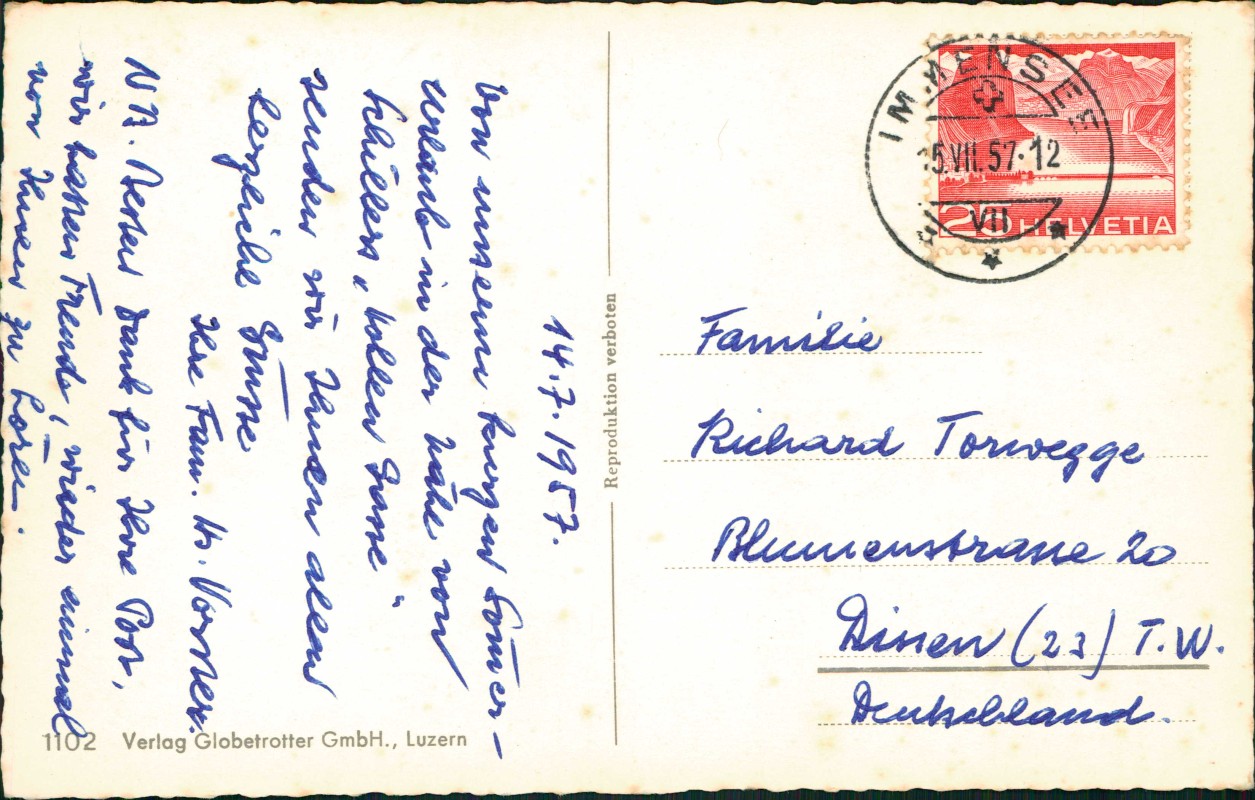 14.7.1957.
Von unserm kurzen Som̄er-
urlaub in der Nähe von
Schillers „hohlen Gasse"
senden wir Ihnen allen
herzliche Grüsse
Ihre Fam. Hs.
NB. Besten Dank für Ihre Post,
wir hatten Freude, wieder einmal
von Ihnen zu hören.
Reproduktion verboten
1102 Verlag Globetrotter GmbH., Luzern
IMMENSEE
15.VII.57-12
VII
20 HELVETIA
Familie
Richard Torwegge
Blumenstrasse 20
Dissen (23) T.W.
Deutschland.